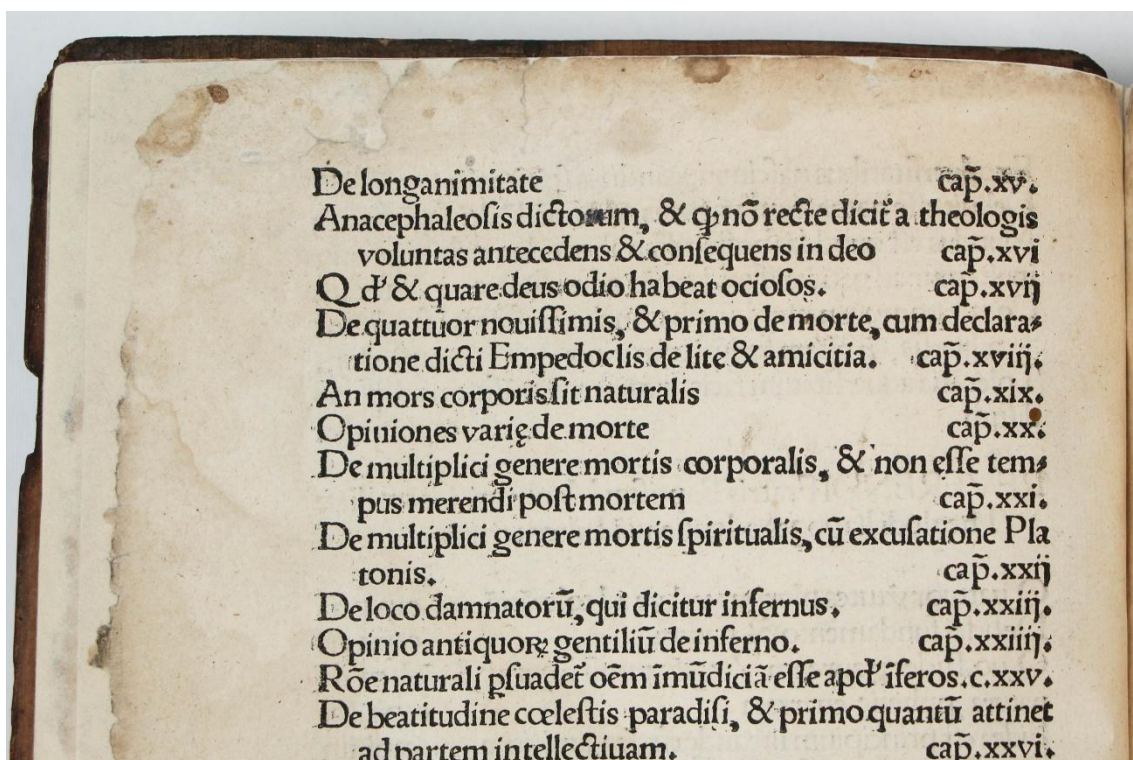 De longanimitate cap̃.xv.
Anacephaleoſis dictorum, & ꝙ nõ recte dicit᷑ a theologis
voluntas antecedens & conſequens in deo cap̃.xvi
Q d' & quare deus odio habeat ocioſos. cap̃.xvij
De quattuor nouiſſimis, & primo de morte, cum declara⸗
tione dicti Empedoclis de lite & amicitia. cap̃.xviij.
An mors corporis ſit naturalis cap̃.xix.
Opiniones varię de morte cap̃.xx.
De multiplici genere mortis corporalis, & non eſſe tem⸗
pus merendi poſt mortem cap̃.xxi.
De multiplici genere mortis ſpiritualis, cũ excuſatione Pla
tonis. cap̃.xxij
De loco damnatorũ, qui dicitur infernus. cap̃.xxiij.
Opinio antiquoꝝ gentiliũ de inferno. cap̃.xxiiij.
Rõe naturali ꝑſuadet᷑ oẽm ĩmũdiciã eſſe apd' ĩferos.c.xxv.
De beatitudine cœleſtis paradiſi, & primo quantũ attinet
ad partem intellectiuam. cap̃.xxvi.